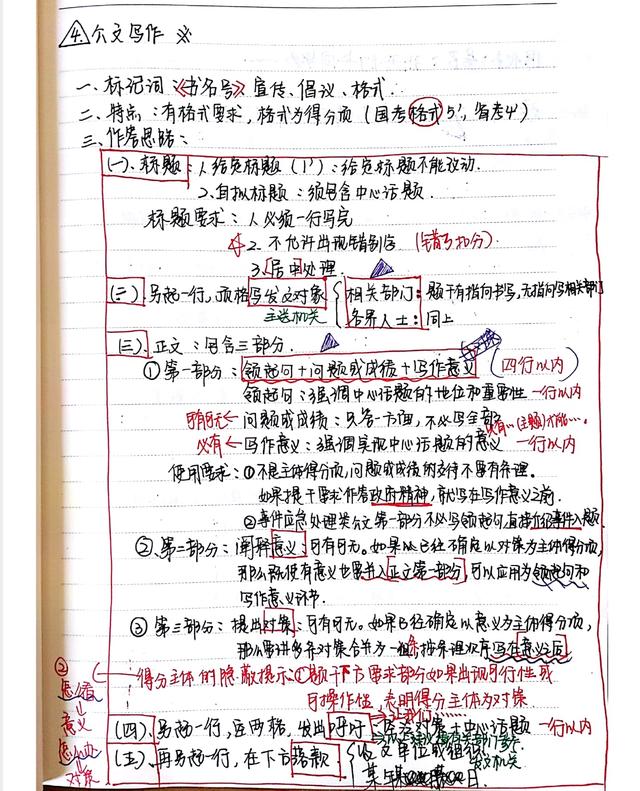 4. 公文写作 ※
一、标记词：《书名号》宣传、倡议、格式.
二、特点：有格式要求，格式为得分项（国考格式5'，省考4'）
三、作答思路：
(一)、标题：1.给定标题（1'）：给定标题不能改动.
2.自拟标题：须包含中心话题.
标题要求：1.必须一行写完
2.不允许出现错别字 （错了扣分）.
3.居中处理.
(二)、另起一行，顶格写发文对象 相关部门：题干有指向书写，无指向写相关部门
主送机关 各界人士：同上
(三)、正文：包含三部分.
①第一部分：领起句+问题或成绩+写作意义 （四行以内）
领起句：强调中心话题的地位和重要性 一行以内
可有可无← 问题或成绩：只答一方面，不必写全部 必有…(主题)才能…
必有← 写作意义：强调实现中心话题的意义 一行以内
使用要求：①不是主体得分项，问题或成绩的交待不要有条理。
如果提干要求作答政府精神，就写在写作意义之前.
②事件应急处理类公文第一部分不必写领起句，直接介绍事件入题.
②、第二部分：阐释意义：可有可无。如果以已经确定以对策为主体得分项，
那么既使有意义也要并入正文第一部分，可以应用为领起句和
写作意义环节.
③第三部分：提出对策：可有可无。如果已经确定以意义为主体得分项，
那么要讲多条对策合并为一组条按条理次序写在意义后
得分主体的隐蔽提示：①题干下方要求部分如果出现可行性或
可操作性，表明得分主体为对策.
②
怎么看
↓
意义
怎么办
↓
对策
(四)、另起一行，空两格，发出呼吁 让我们…… 对策+中心话题 一行以内
(五)、再另起一行，在下方落款 发文单位或组织
发文机关
某年 日.